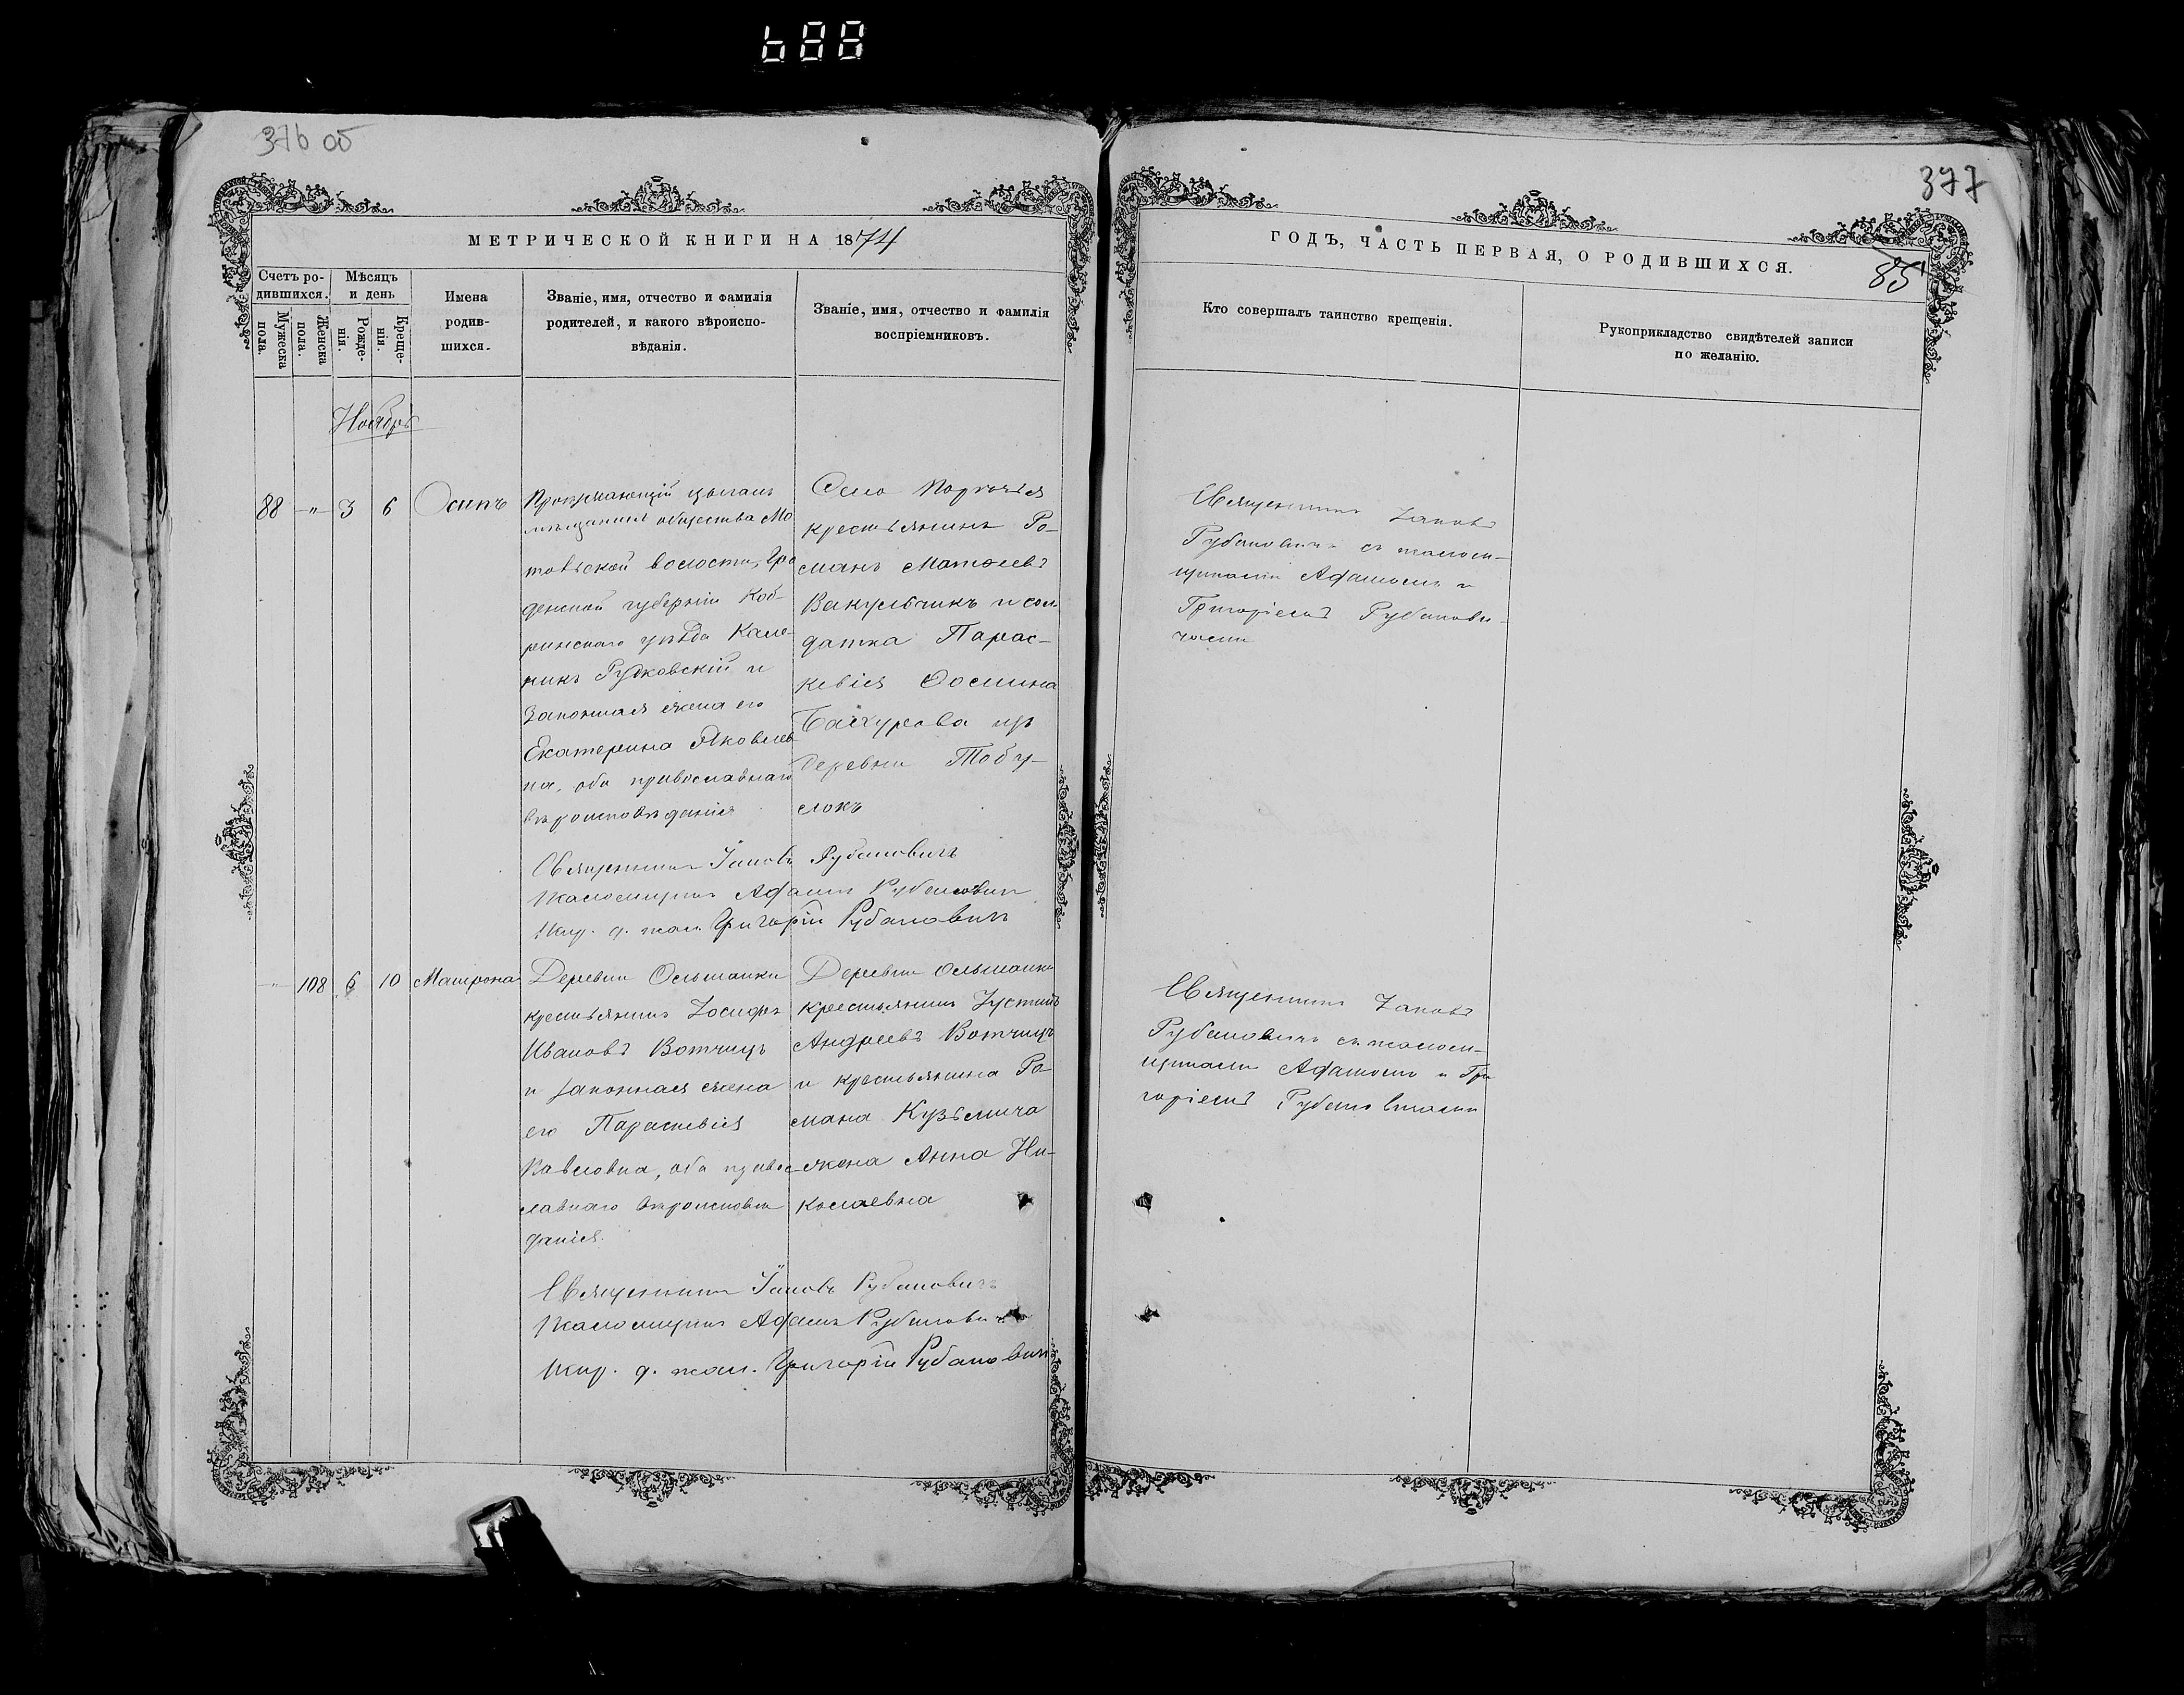 688
376 об
377
МЕТРИЧЕСКОЙ КНИГИ НА 1874
ГОДЪ, ЧАСТЬ ПЕРВАЯ, О РОДИВШИХСЯ.
85
Счетъ ро-
дившихся.
Мужеска
пола.
Женска
пола.
Мѣсяцъ
и день
Рожде-
нія.
Креще-
нія.
Имена
родив-
шихся.
Званіе, имя, отчество и фамилія
родителей, и какого вѣроиспо-
вѣданія.
Званіе, имя, отчество и фамилія
воспріемниковъ.
Кто совершалъ таинство крещенія.
Рукоприкладство свидѣтелей записи
по желанію.
Ноябрь
88 -"- 3 6 Осипъ
цыганъ
общества Мо
товьской волости, Гро
денской губерніи Коб-
ринскаго уѣзда
Рудковскій и
законная жена его
Екатерина Яковлев
на, оба православнаго
вѣроисповѣданія
Село Порѣчья
крестьянинъ Ро-
манъ Матѳеевъ
Вакульчикъ и сол-
датка Парас-
кевія
изъ
деревни Тобу-
локъ
Священникъ Іаковъ
Рубановичъ съ псаломщ-
щиками Адамомъ и
Григоріемъ Рубанови-
чами
Священникъ Іаковъ Рубановичъ
Псаломщикъ Адамъ Рубановичъ
Исп. д. псал. Григорій Рубановичъ
-"- 108 6 10 Матрона
Деревни Ольшанки
крестьянинъ Іосифъ
Ивановъ Вотчицъ
и законная жена
его Параскевія
Павловна, оба право-
славнаго вѣроисповѣ
данія.
Деревни Ольшанки
крестьянинъ Іустинъ
Андреевъ Вотчицъ
и крестьянина Ро-
мана Кузьмича
жена Анна Ни-
колаевна
Священникъ Іаковъ
Рубановичъ съ псалом-
щиками Адамомъ и Гри
горіемъ Рубановичами
Священникъ Іаковъ Рубановичъ
Псаломщикъ Адамъ Рубановичъ
Исп. д. псал. Григорій Рубановичъ